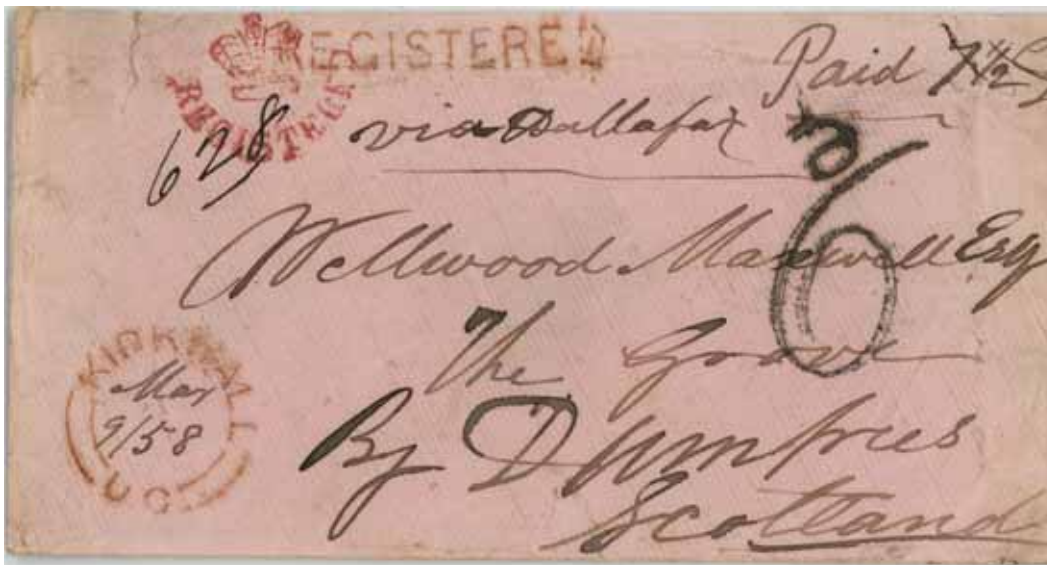 REGISTERED
REGISTERED
Paid 7½
628
via Hallafax
6
Wellwood Maxwell Esq
The Grove
By Dumfries
Scotland
KIRKWALL
Mar
9/58
U.C.